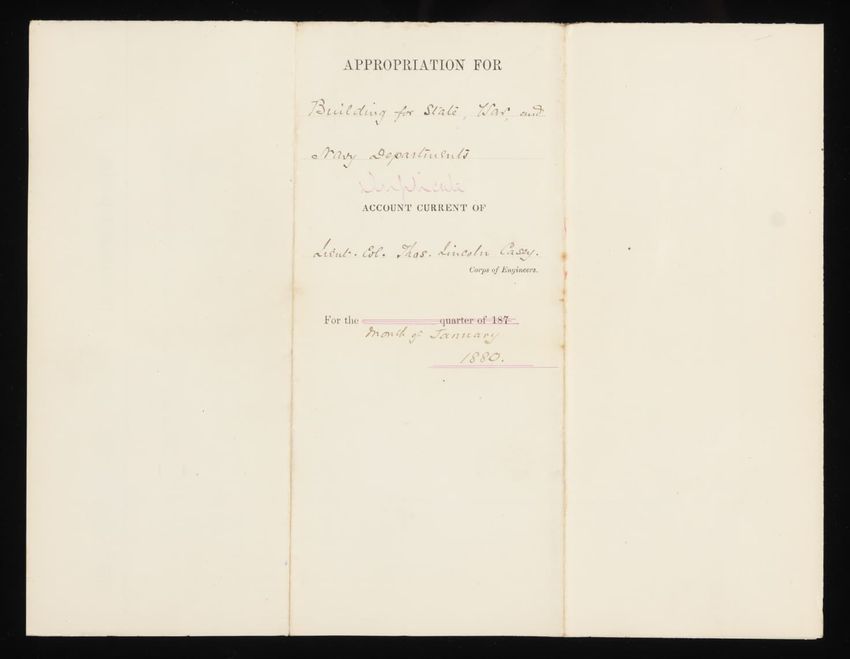 APPROPRIATION FOR
Building for State, War, and
Navy Departments
Duplicate
ACCOUNT CURRENT OF
Lieut. Col. Thos. Lincoln Casey.
Corps of Engineers.
For the quarter of 187
Month of January
1880.